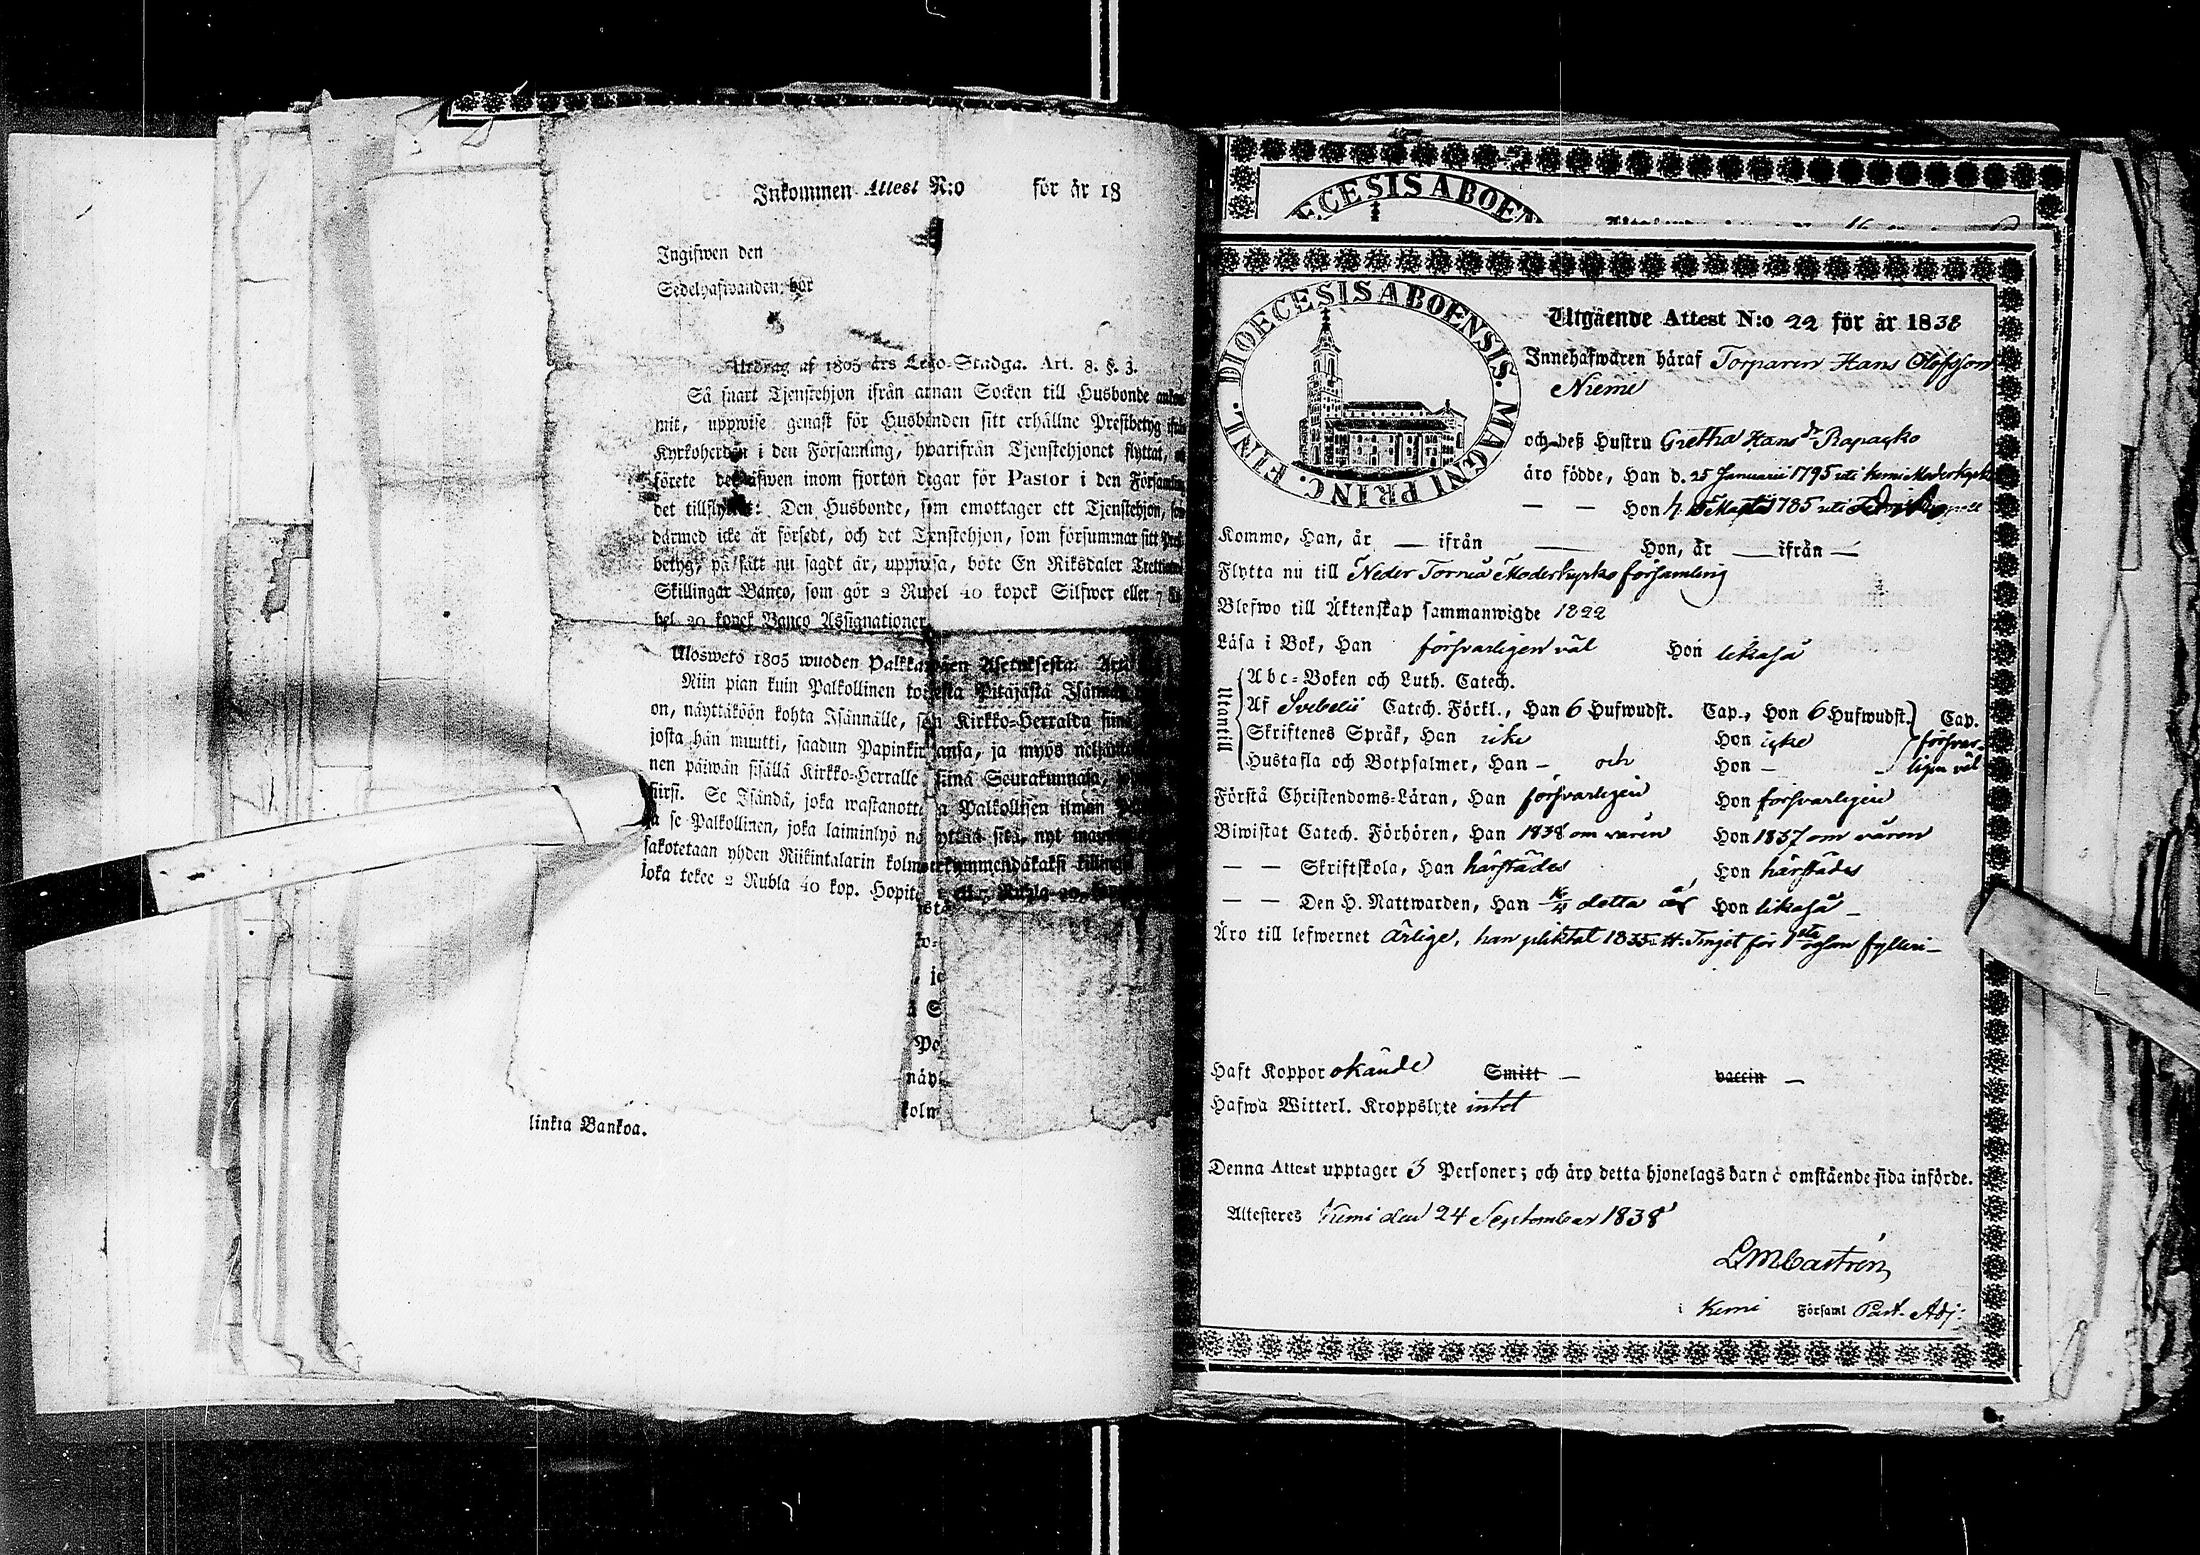 Inkommen Attest N:o för år 18
Ingifwen den
Sedelhafwanden har
Utdrag af 1805 års Lego-Stadga. Art. 8. §. 3.
Så snart Tjenstehjon ifrån annan Socken till Husbonde
mit, uppwise genast för Husbonden sitt erhållne Prestbetyg ifrån
Kyrkoherden i den Församling, hvarifrån Tjenstehjonet flyttat,
förete det äfwen inom fjorton dagar för Pastor i den
det tillflyttat: Den Husbonde, som emottager ett Tjenstehjon,
därmed icke är försedt, och det Tjenstehjon, som försummar sitt
betyg, på sätt nu sagdt är, uppwisa, böte En Riksdaler
Skillingar Banco, som gör 2 Rubel 40 kopek Silfwer eller 7
bel 20 kopek Banco Assignationer
Uloswetö 1805 wuoden Asetuksesta.
Niin pian kuin Palkollinen toisesta Pitäjästä
on, näyttäköön kohta Isännälle, sen Kirkko-Herralda
josta hän muutti, saadun Papinkirjansa, ja myös
nen päiwän sisällä Kirkko-Herralle siinä Seurakunnasa,
siirsi. Se Isändä, joka wastanottaa Palkollisen ilman
ja se Palkollinen, joka laiminlyö näyttää sitä, nyt
sakotetaan yhden Riikintalarin kolmekymmendäkaksi killingiä
joka tekee 2 Rubla 40 kop.
Po
näyt
kolm
linkia Bankoa.
ECESIS ABOEN
DIOECESIS ABOENSIS. MAGNI PRINC. FINL.
Utgående Attest N:o 22 för år 1838
Innehafwaren häraf Torparen Hans Olofsson
Niemi
och deß Hustru Gretha Hans dr Rapacko
äro födde, Han d. 25 Januarii 1795 uti Kemi Moderkyrko
— — Hon 1785 uti
Kommo, Han, år — ifrån — Hon, år — ifrån —
Flytta nu till Neder Torneå Moderkyrko församling
Blefwo till Äktenskap sammanwigde 1822
Läsa i Bok, Han försvarligen väl Hon likaså
Utantill
Abc-Boken och Luth. Catech.
Af Svebelii Catech. Förkl., Han 6 Hufwudst. Cap., Hon 6 Hufwudst. Cap.
Skriftenes Språk, Han icke Hon icke försvar-
Hustafla och Botpsalmer, Han — och Hon — ligen väl
Förstå Christendoms-Läran, Han försvarligen Hon försvarligen
Biwistat Catech. Förhören, Han 1838 om våren Hon 1837 om våren
— — Skriftskola, Han härstädes Hon härstädes
— — Den H. Nattwarden, Han detta år Hon likaså —
Äro till lefwernet ärlige, han pliktat 1835 Tinget för 1sta fylleri —
Haft Koppor okände Smitt — vaccin —
Hafwa Witterl. Kroppslyte intet
Denna Attest upptager 3 Personer; och äro detta hjonelags barn å omstående sida införde.
Attesteres Kemi den 24 September 1838
LMCastrén
i Kemi Församl Past. Adj: